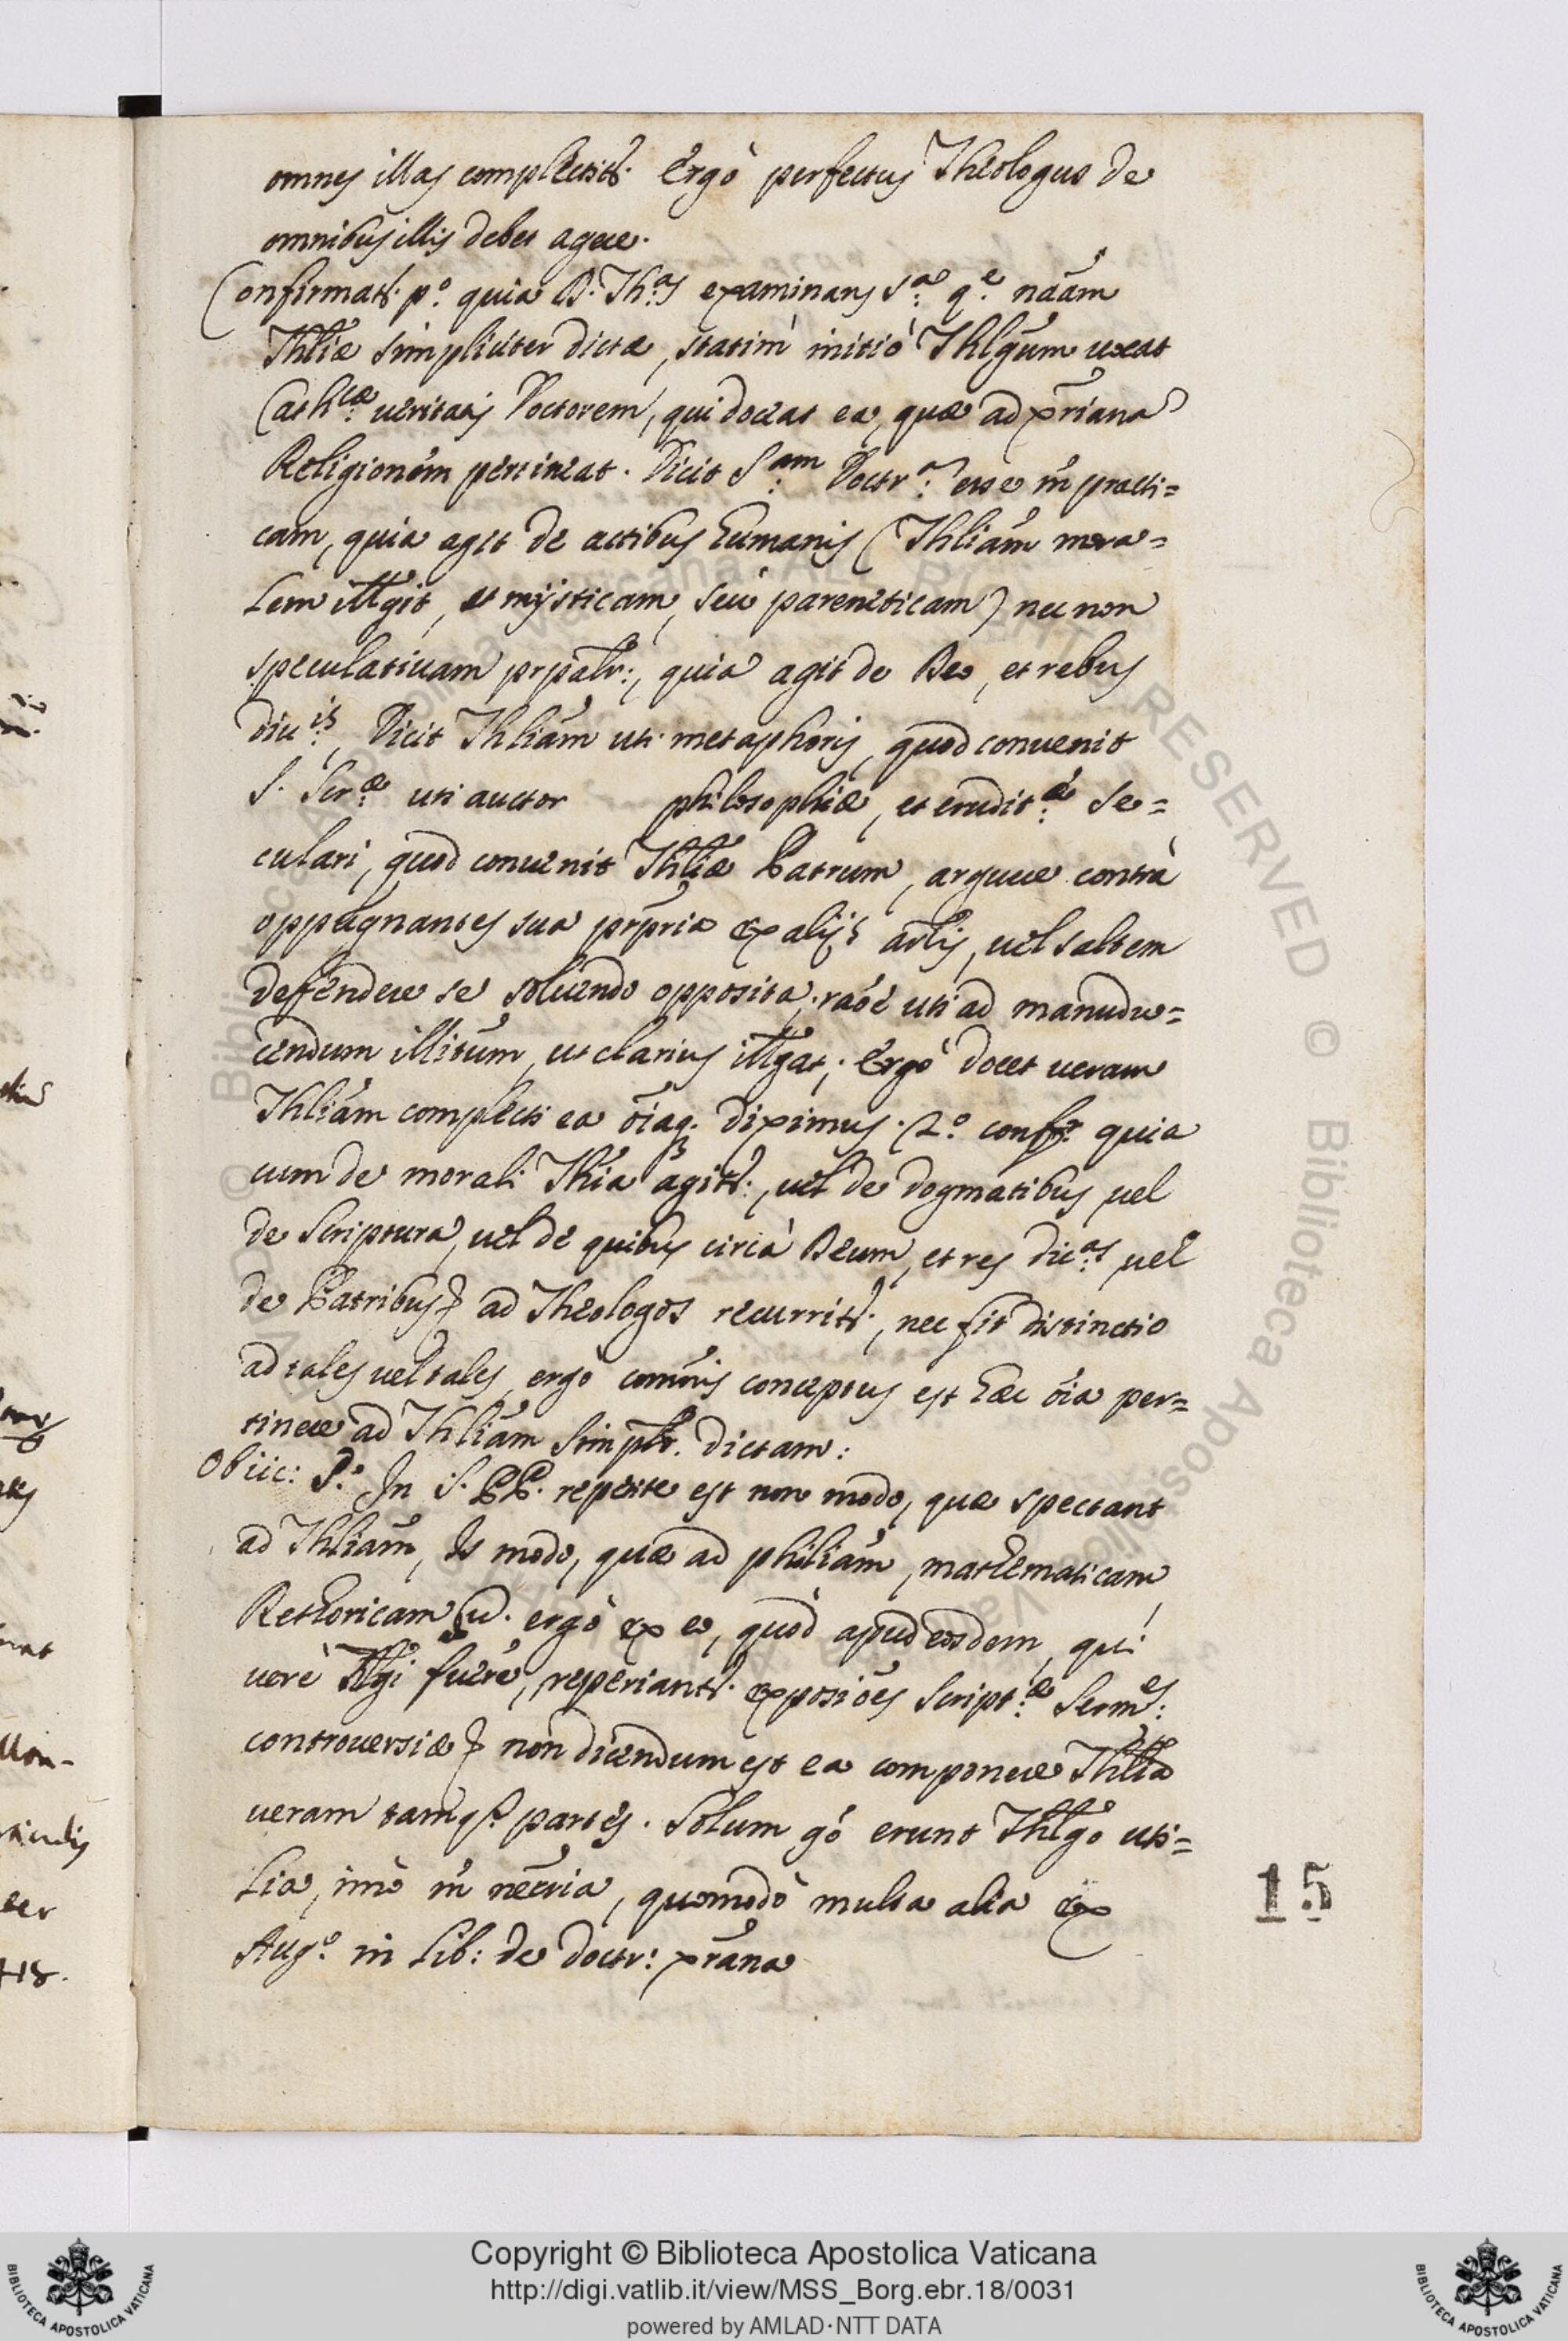 omnes illas complectitr. Ergò perfectus Theologus de
omnibus illis debet agere.
Confirmatr. pº. quia B. Th:as examinans S:a q:e nãam
Thliæ simpliciter dictæ, statim initiò Thlgum vocat
Cath:cæ veritatis Doctorem, qui doceat ea, quæ ad xp̃riana
Religionem pertineat. Dicit S:am Doctr:a esse m̃ practi=
cam, quia agit de actibus humanis (Thliam mora=
lem illgit, et mÿsticam, seu pareneticam) nec non
speculativam prpalr:, quia agit de Deo, et rebus
div:is, Dicit Thliam uti metaphoris, quod convenit
S. Scr:æ uti auctor philosophiæ, et erudit:æ se=
culari, quod convenit Thliæ Patrum, arguere contrà
oppugnantes sua prpria ex alijs artis, vel saltem
defendere se solvendo opposita; raõe uti ad manudu=
cendum illitum, ut clarius illgat; Ergò docet veram
Thliam complecti ea õia q; diximus. 2º. confr. quia
cum de morali Thia agitr:, vel de dogmatibus vel
de Scriptura, vel de quibus circà Deum, et res dic:as vel
de Patribus ad Theologos recurritr., nec fit distinctio
ad tales vel tales, ergo comũis conceptus est hæc õia per=
tinere ad Thliam simplr. dictam:
Obiic: Pº. In S. PP. reperire est non modo, quæ spectant
ad Thliam, modo, quæ ad philiam, mathematicam
Rethoricam ergò ex eo, quòd apud eosdem, qui
verè Thlgi fuere, reperiantr. exposiões Script:æ Serm:es:
controversiæ non dicendum est ea componere Thlia
veram tamq. partes. Solum gó erunt Thlgo uti=
lia, imò m̃ nec̃ria, quomodò multa alia ex
Augº. in Lib: de doctr: xp̃rana
15
Copyright © Biblioteca Apostolica Vaticana
http://digi.vatlib.it/view/MSS_Borg.ebr.18/0031
powered by AMLAD·NTT DATA